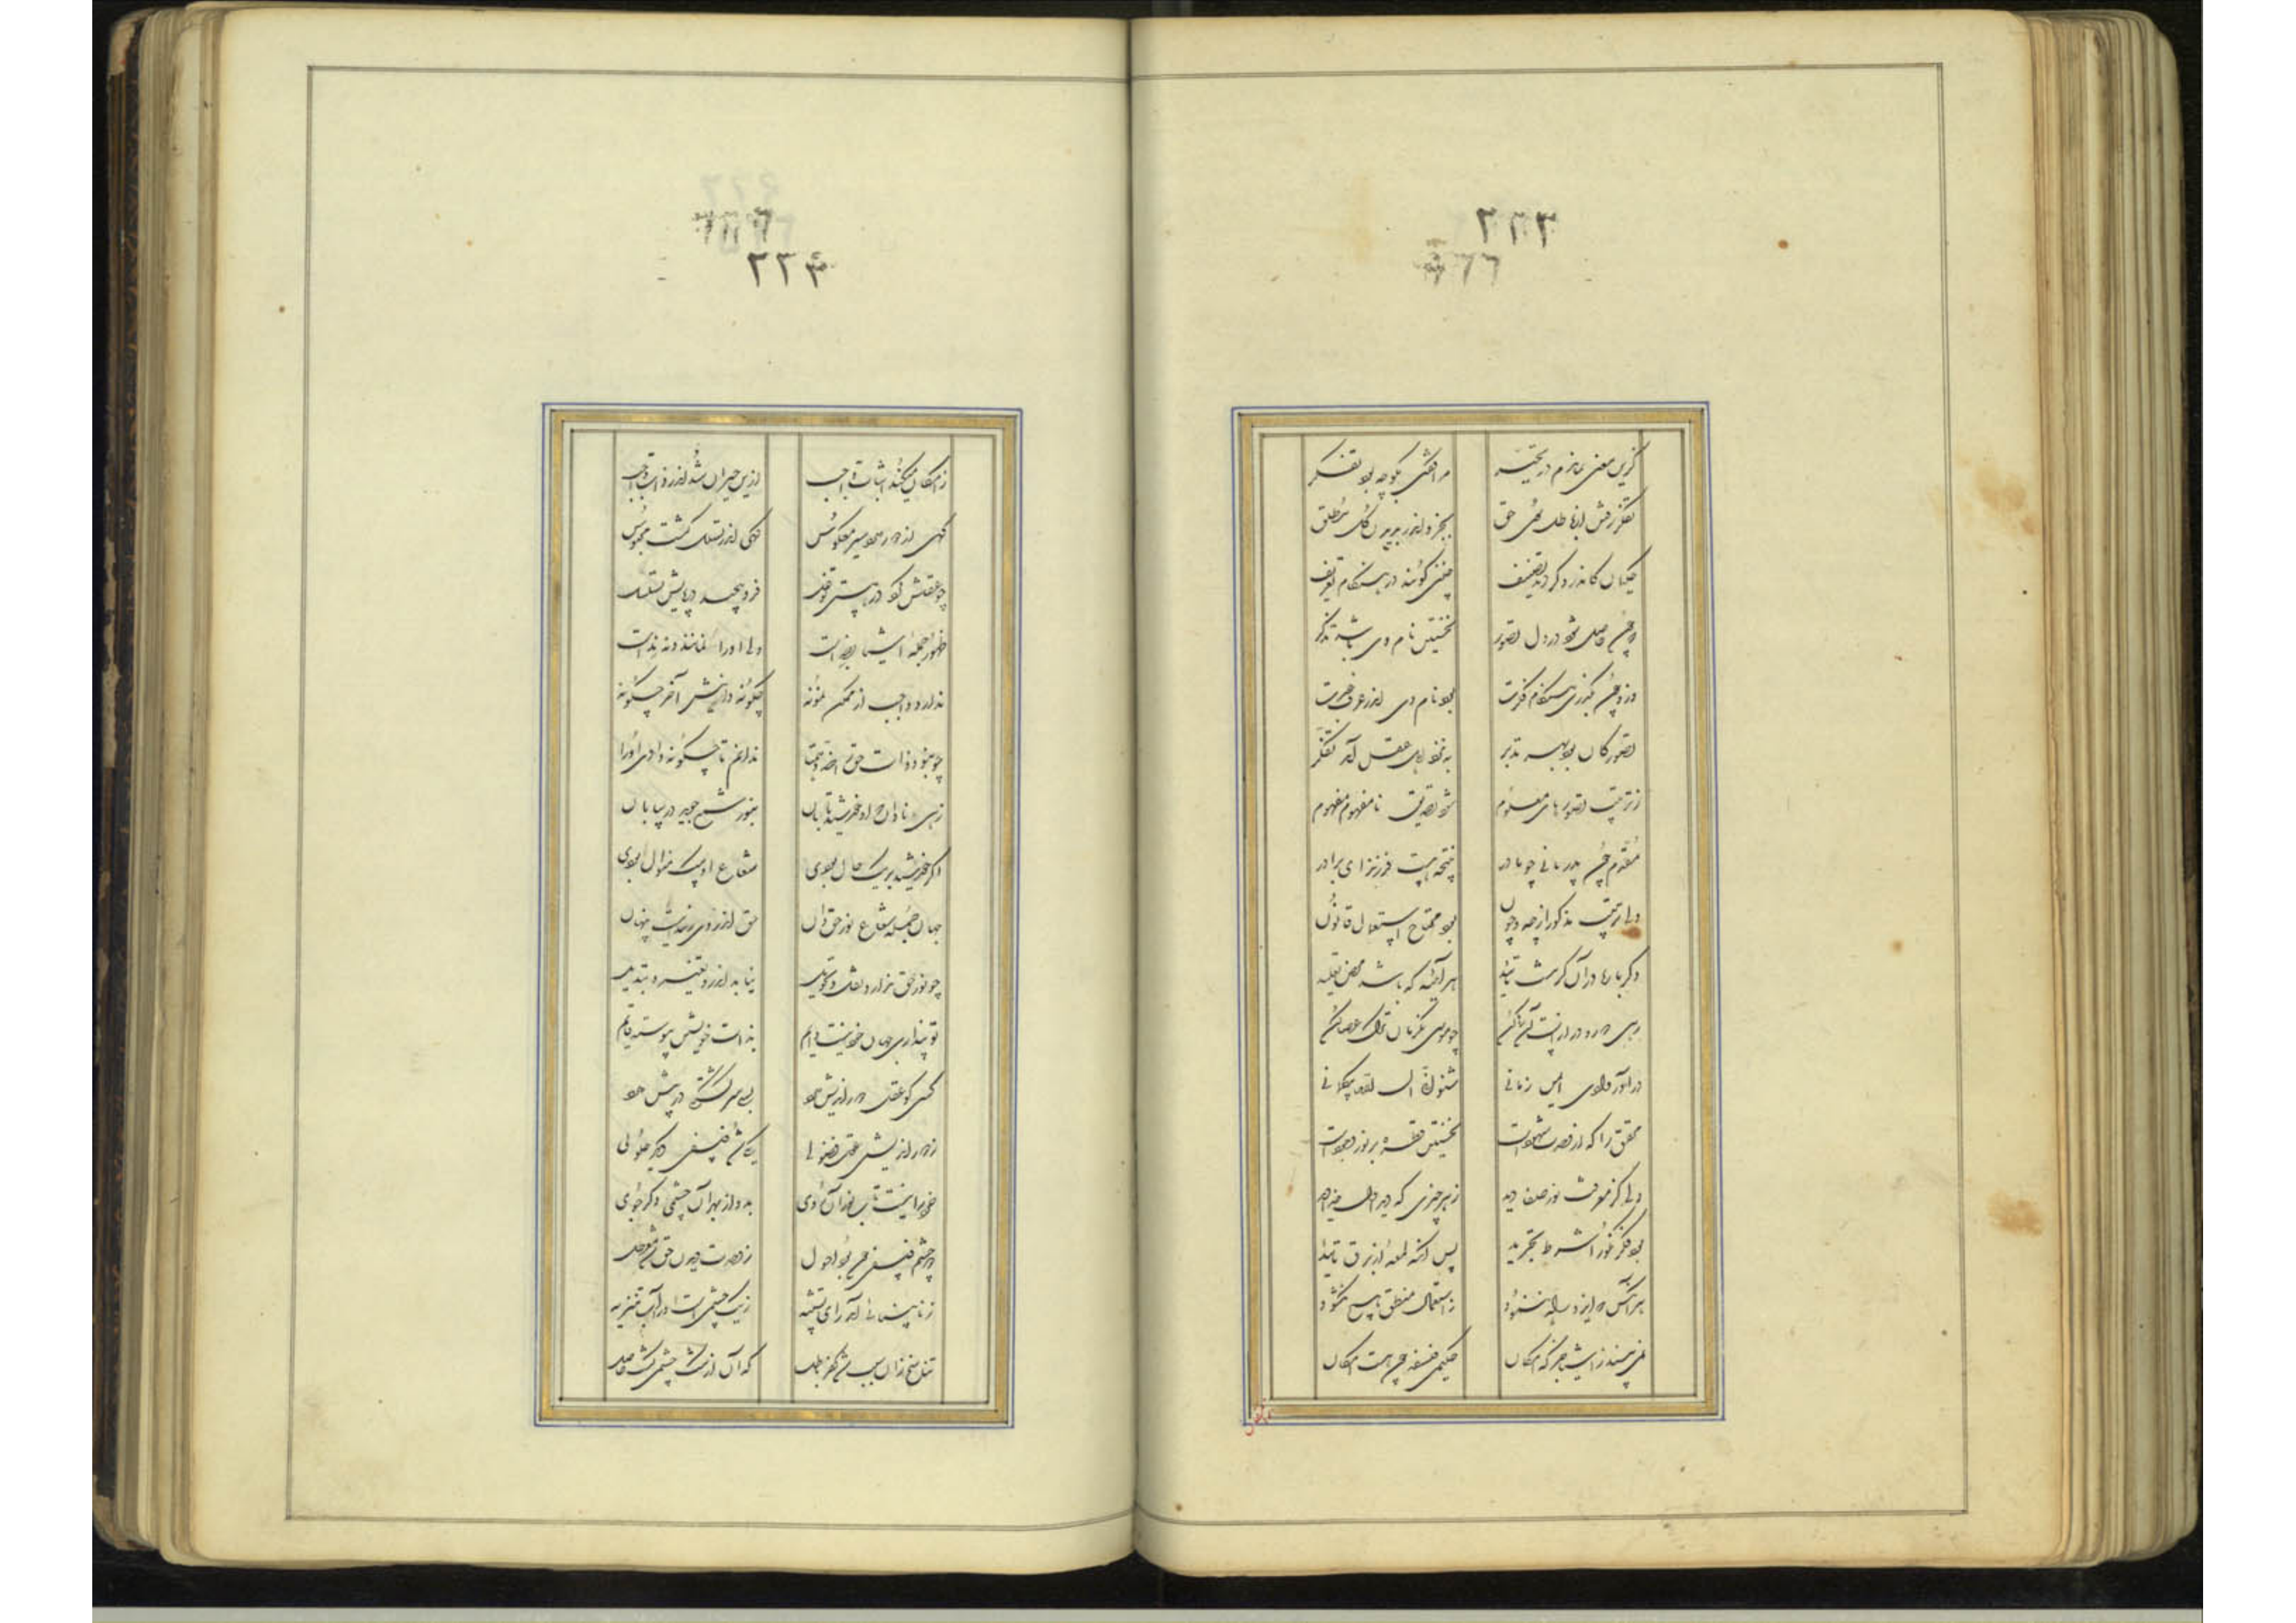 ٢٢٣
کزین معنی بماندم در تحیر مرا گفتی بگو چه بود تفکر
تفکر رفتن از باطل سوی حق بجزو اندر بدیدن کل مطلق
حکیمان کاندرو کردند تصنیف چنین گویند در هنگام تعریف
که چون حاصل شود در دل تصور نخستین نام وی باشد تذکر
وزو چون بگذری هنگام فکرت بود نام وی اندر عرف عبرت
تصور کان بود بهر تدبر به نزد اهل عقل آمد تفکر
ز ترتیب تصورهای معلوم شود تصدیق نامفهوم مفهوم
مقدم چون پدر تالی چو مادر نتیجه هست فرزند ای برادر
ولی ترتیب مذکور از چه و چون بود محتاج استعمال قانون
دگر باره در آن گر نیست تایید هر آینه که باشد محض تقلید
رهی دور و دراز است آن رها کن چو موسی یکزمان ترک عصا کن
درا در وادی ایمن زمانی شنو انی انا الله بیگمانی
محقق را که از وحدت شهودست نخستین نظره بر نور وجودست
ولی کز معرفت نور صفا دید ز هر چیزی که دید اول خدا دید
بود فکر نکو را شرط تجرید پس آنگه لمعه از برق تایید
هر آنکس را که ایزد راه ننمود ز استعمال منطق هیچ نگشود
نمی بیند ز اشیا جز که امکان حکیمی فلسفی چون هست امکان
٢٢٣
ز امکان میکند اثبات واجب ازین حیران شد اندر ذات واجب
گهی از دور دارد سیر معکوس گهی اندر تسلسل گشت محبوس
چو عقلش کرد در هستی توغل فرو پیچید در پایش تسلسل
ظهور جمله اشیا بضد است ولی او را نه مانند و نه ند است
ندارد واجب از ممکن نمونه چگونه دانیش آخر چگونه
چو نبود ذات حق را ضد و همتا ندانم تا چگونه دانی او را
زهی نادان که او خورشید تابان بنور شمع جوید در بیابان
اگر خورشید بر یک حال بودی شعاع او بیک منوال بودی
جهان جمله شعاع نور حق دان حق اندر وی ز پیداییست پنهان
چو نور حق ندارد نقل و تحویل نیاید اندرو تغییر و تبدیل
تو پنداری جهان خود نیست دایم بذات خویشتن پیوسته قایم
کسی کو عقل دور اندیش دارد بسی سرگشتگی در پیش دارد
ز دور اندیشی عقل فضولی یکی شد فلسفی دیگر حلولی
خرد را نیست تاب نور آن روی برو از بهر آن چشمی دگر جوی
دو چشم فلسفی چون بود احول ز وحدت دیدن حق شد معطل
ز نابینایی آمد رای تشبیه ز یک چشمی است ادراکات تنزیه
تناسخ زان سبب شد کفر و باطل که آن از تنگ چشمی گشت حاصل